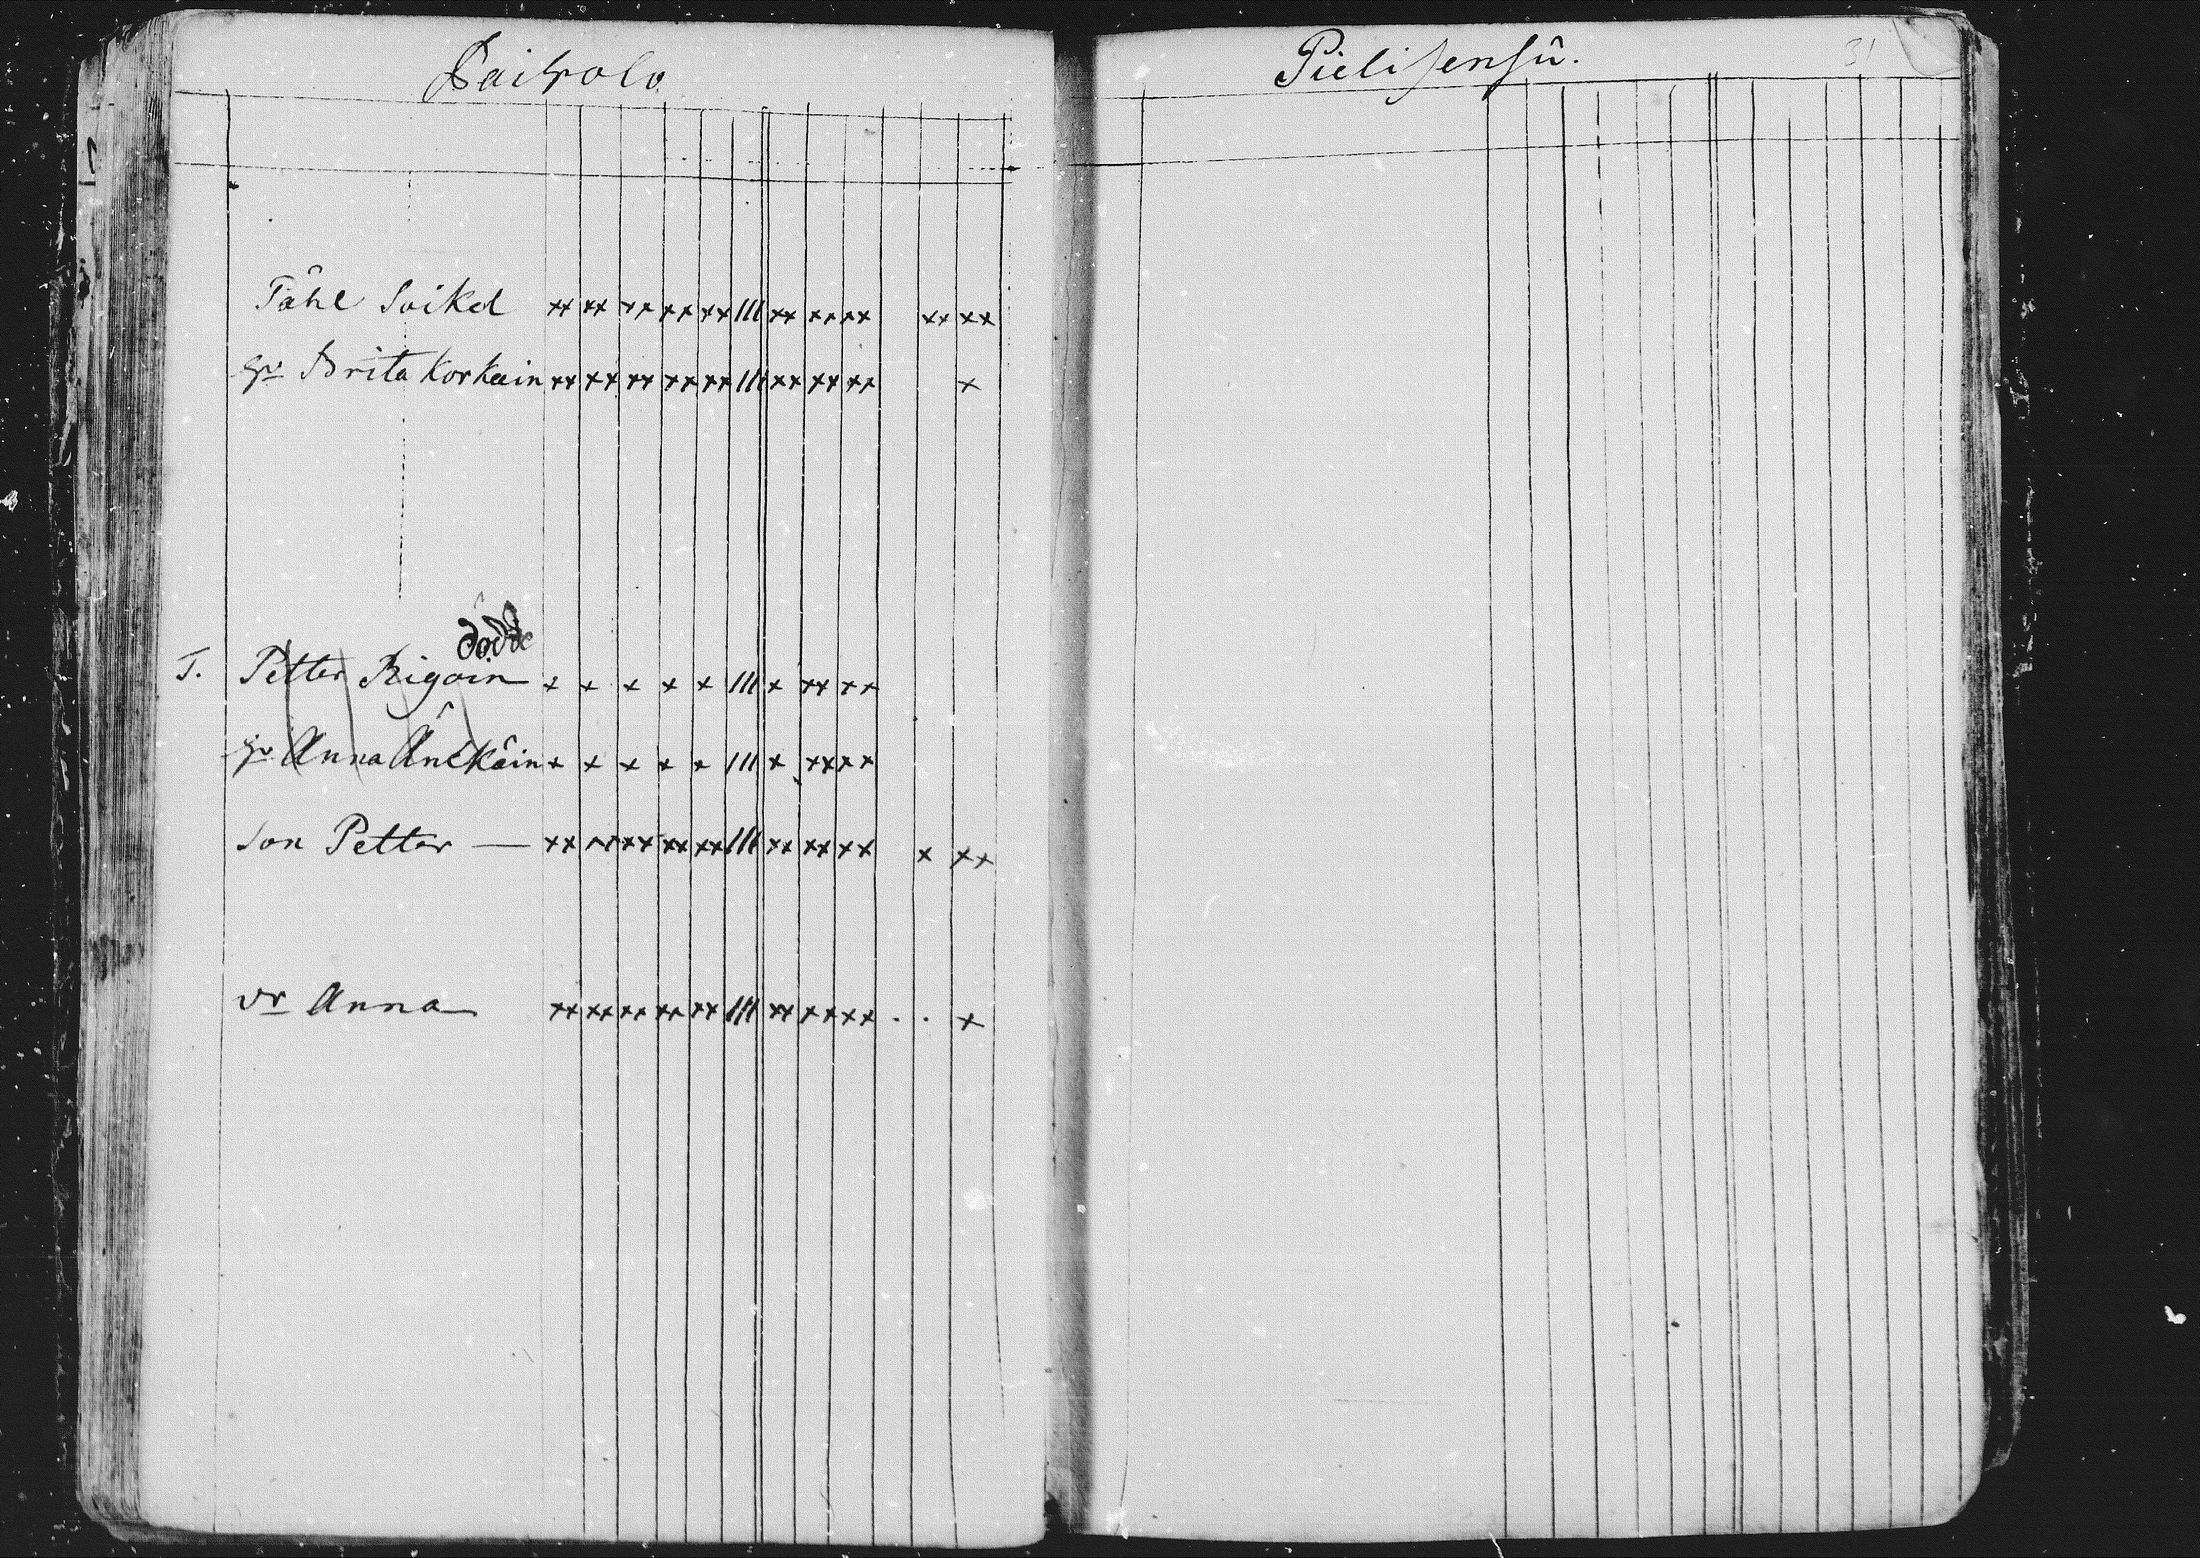 Paipola
Pielisensû.
31
Påhl Soikel xx xx xx xx xx III xx xx xx xx xx
hu Brita Korkain xx xx xx xx xx III xx xx xx x
dödde
T. Petter Rigoin x x x x x III x xx xx
hu Anna x x x x x III x xx xx
Son Petter — xx xx xx xx xx III xx xx xx x xx
vr Anna xx xx xx xx xx III xx xx xx . . x